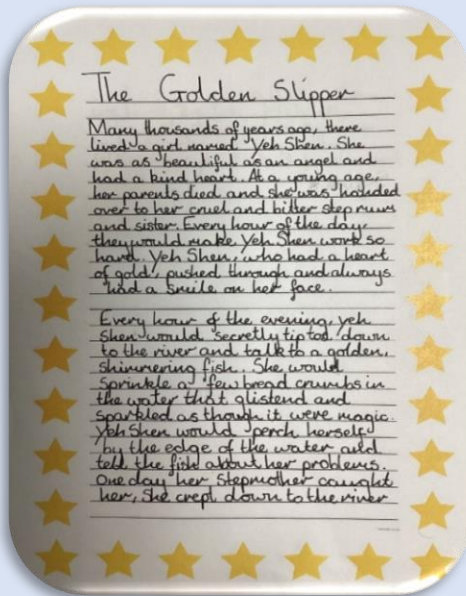 The Golden Slipper
Many thousands of years ago, there
lived a girl named Yeh Shen. She
was as beautiful as an angel and
had a kind heart. At a young age,
her parents died and she was handed
over to her cruel and bitter step mum
and sister. Every hour of the day,
they would make Yeh Shen work so
hard. Yeh Shen, who had a heart
of gold, pushed through and always
had a smile on her face.
Every hour of the evening, yeh
Shen would secretly tip toe down
to the river and talk to a golden,
shimmering fish. She would
sprinkle a few bread crumbs in
the water that glistend and
sparkled as though it were magic.
Yeh Shen would perch herself
by the edge of the water and
tell the fish about her problems.
One day her stepmother caught
her, She crept down to the river